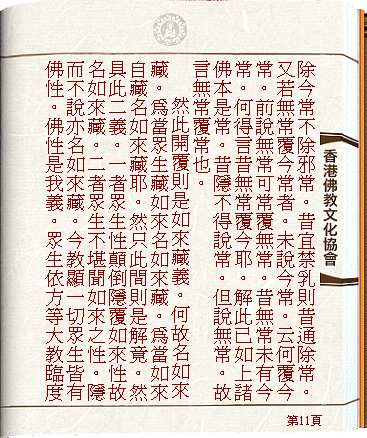 除今常不除邪常。昔宜禁乳則昔通除常。
又若無常覆今常者。未說今常。云何覆今
常。前說無常可常覆無常。昔無常未有今
常。何得言昔無常覆今耶。解此已如上諸
佛本是常。昔隱不得說常。但說無常。故
言無常覆常也。
然此開覆則是如來藏義。何故名如來
藏。爲當眾生藏如來名如來藏。爲當如來
自藏名如來藏耶。然只此間則是解竟。然
具此二義。一者眾生性顛倒隱覆如來性故
名如來藏。二者眾生不堪聞如來之性。隱
而不說亦名如來藏。今教顯一切眾生皆有
佛性。佛性是我義。眾生依方等大教臨度
香港佛教文化協會
第11頁